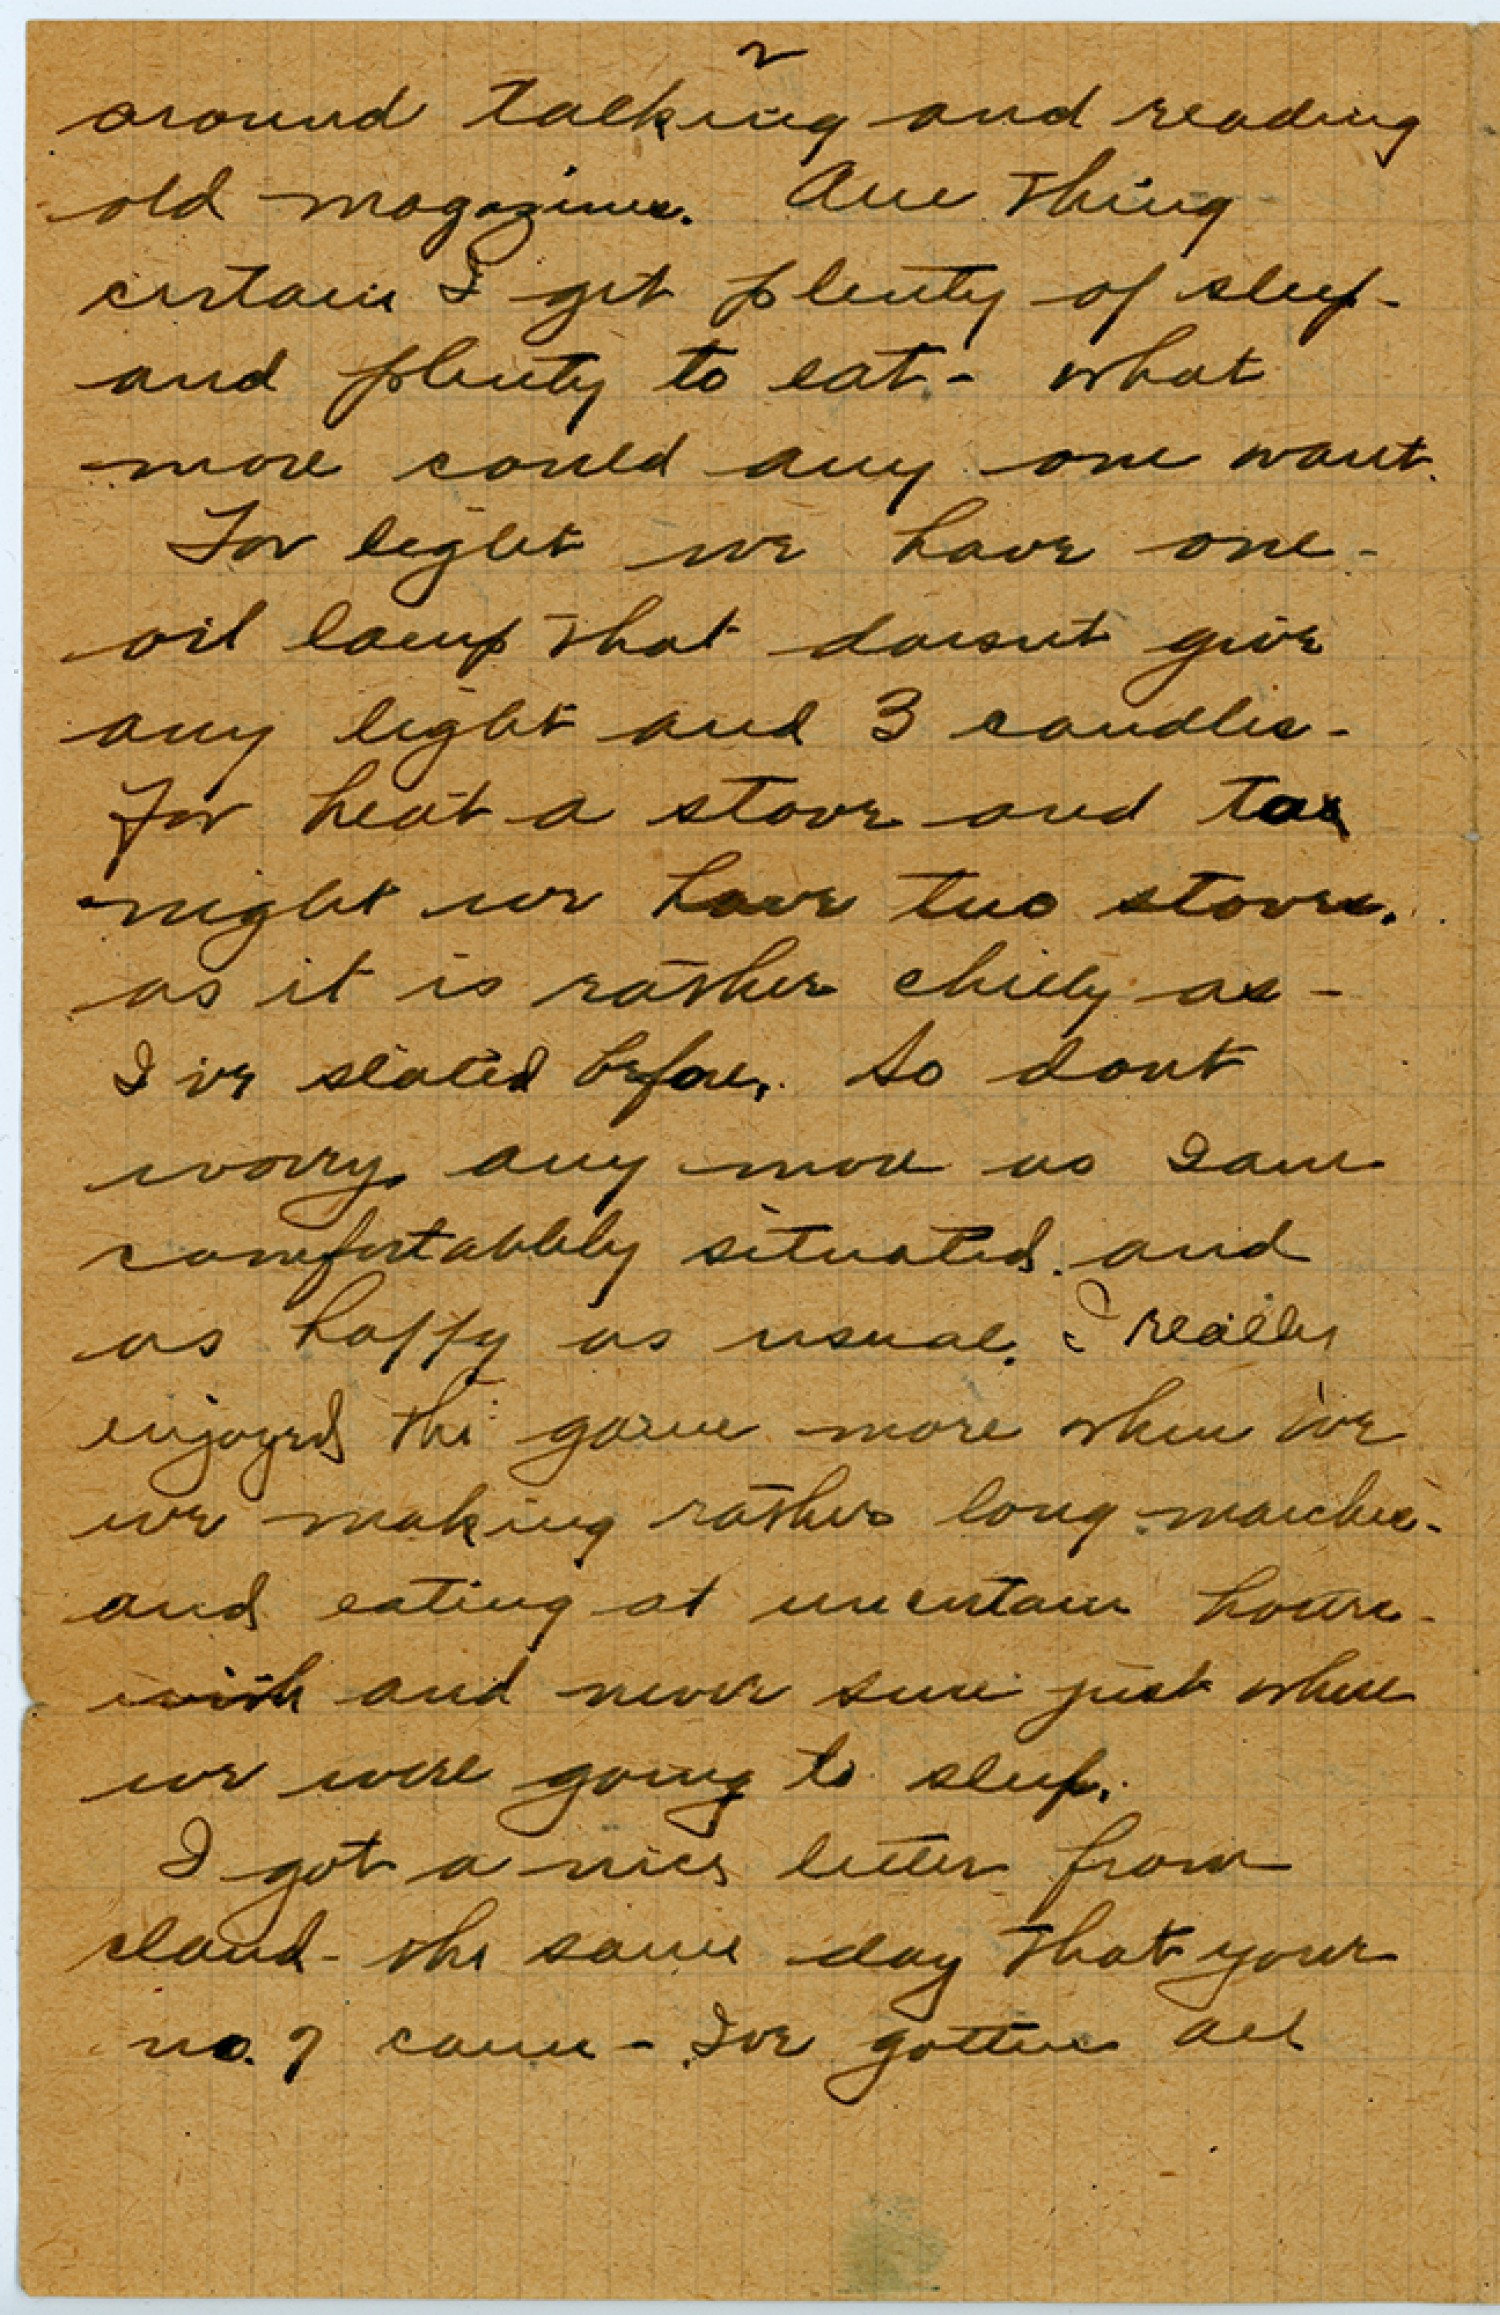 2
around talking and reading
old magazines. One thing
certain I get plenty of sleep -
and plenty to eat - what
more could any one want.
For light we have one -
oil lamp that doesnt give
any light and 3 candles -
For heat a stove and to
night we have two stoves.
as it is rather chilly as -
I've stated before. So dont
worry any more as I am
comfortablely situated and
as happy as usual. I really
enjoyed the game more when we
we making rather long marches -
and eating at uncertain hours -
with and never sure just where
we were going to sleep.
I got a nice letter from
Claud - the same day that your
no. 7 came - I've gotten all